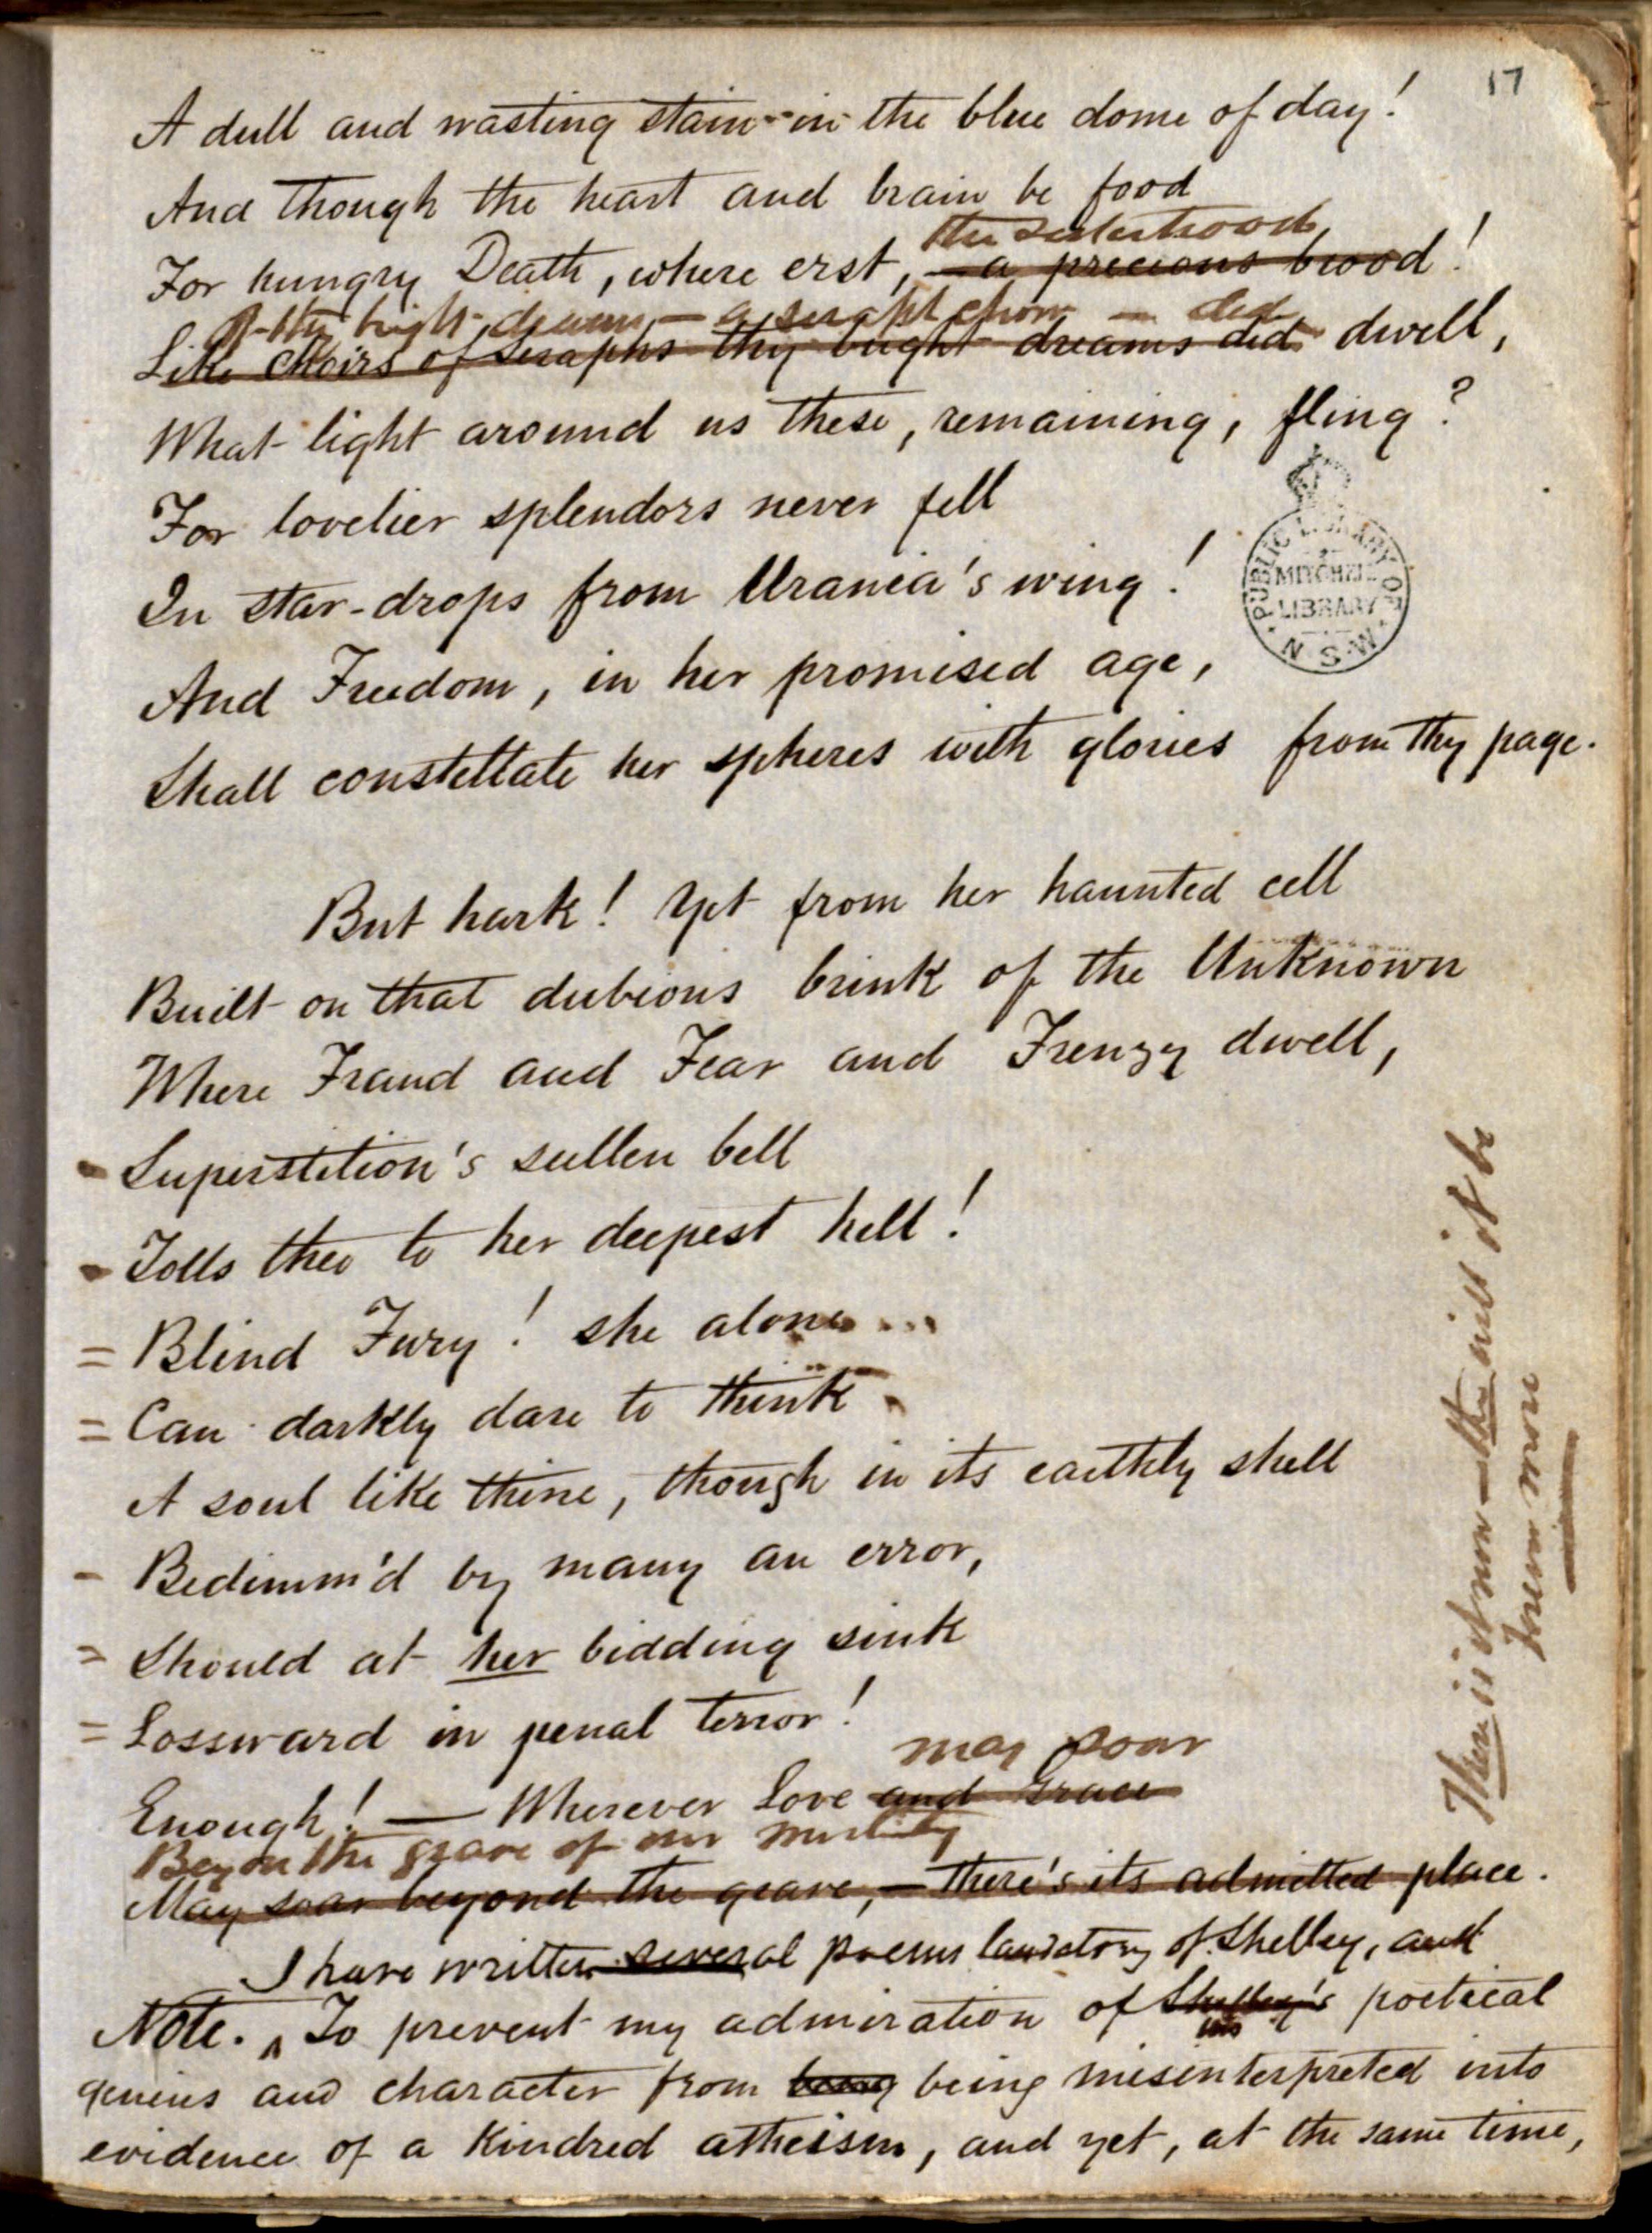 17
A dull and wasting stain in the blue dome of day!
And though the heart and brain be food
the sisterhood
For hungry Death, where erst, — a precious brood!
Of thy bright dreams, — a seraph choir — did
Like choirs of seraphs thy bright dreams did dwell,
What light around us these, remaining, fling?
For lovelier splendors never fell
In star-drops from Urania's wing!
And Freedom, in her promised age,
Shall constellate her spheres with glories from thy page.
PUBLIC LIBRARY OF
MITCHELL
LIBRARY
N.S.W.
But hark! Yet from her haunted cell
Built on that dubious brink of the Unknown
Where Fraud and Fear and Frenzy dwell,
- Superstition's sullen bell
- Tolls thee to her deepest hell!
= Blind Fury! she alone ...
= Can darkly dare to think
A soul like thine, though in its earthly shell
- Bedimm'd by many an error,
= Should at her bidding sink
= Lossward in penal terror!
may soar
Enough! — Wherever Love and Grace
Beyond the grave of our mortality
May soar beyond the grave, — there's its admitted place.
There is it now — there will it be
forever more
I have written several poems laudatory of Shelley, and
Note. ^ To prevent my admiration of Shelley's poetical
his
genius and character from being being misinterpreted into
evidence of a kindred atheism, and yet, at the same time,